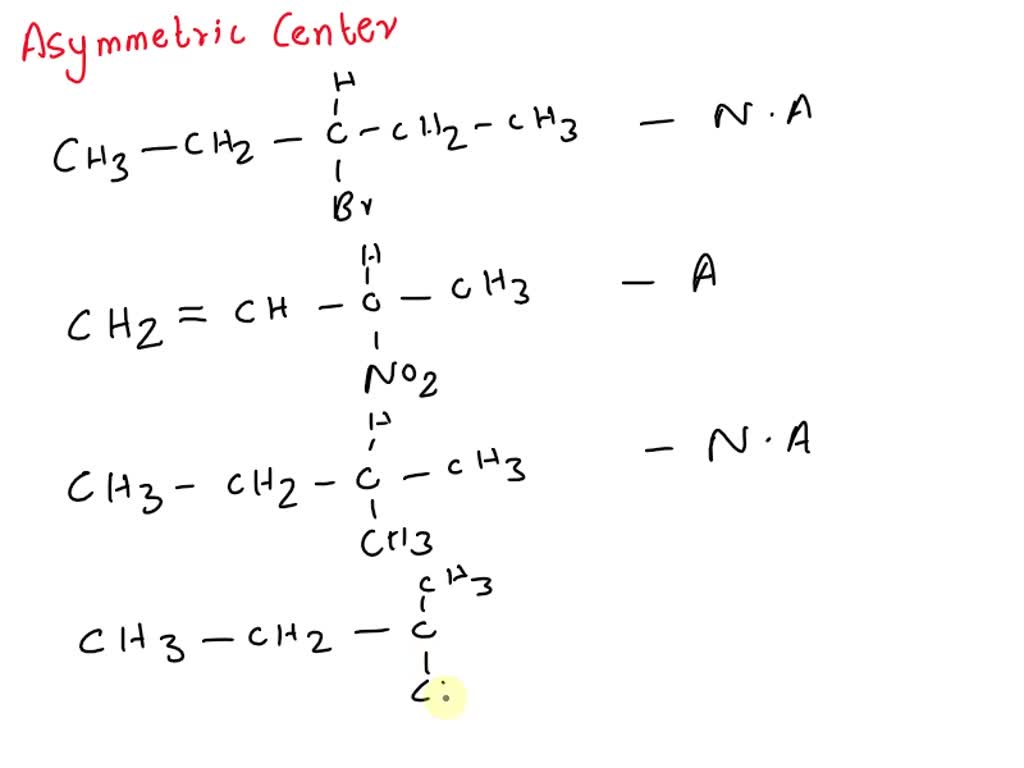 Asymmetric Center
H
CH3 - CH2 - C - CH2 - CH3 - N.A
Br
H
CH2 = CH - C - CH3 - A
NO2
H
CH3 - CH2 - C - CH3 - N.A
CH3
CH3
CH3 - CH2 - C
C